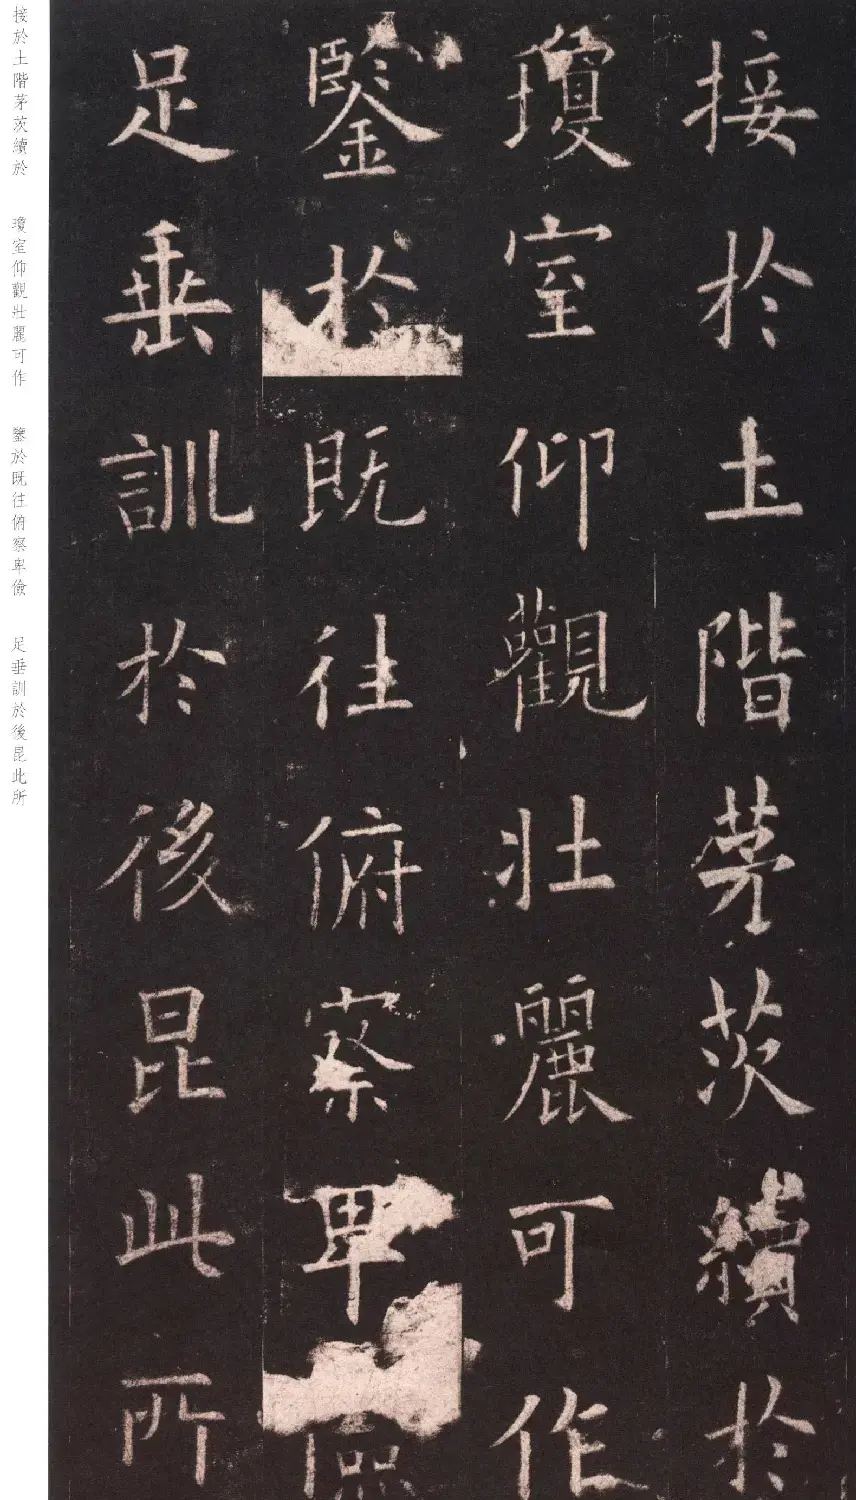 接於土階茅茨續於
瓊室仰觀壯麗可作
鑒於既往俯察卑儉
足垂訓於後昆此所
接於土階茅茨續於 瓊室仰觀壯麗可作 鑒於既往俯察卑儉 足垂訓於後昆此所